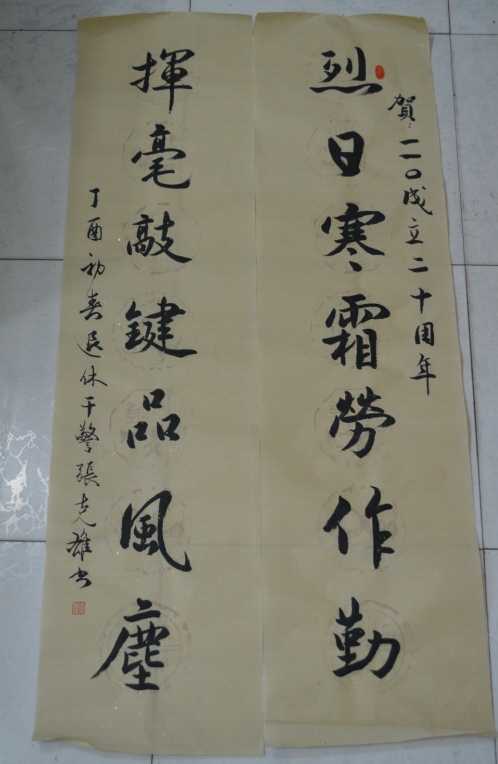 賀：一一〇成立二十周年
烈日寒霜勞作勤
揮毫敲鍵品風塵
丁酉初春退休干警張克雄书